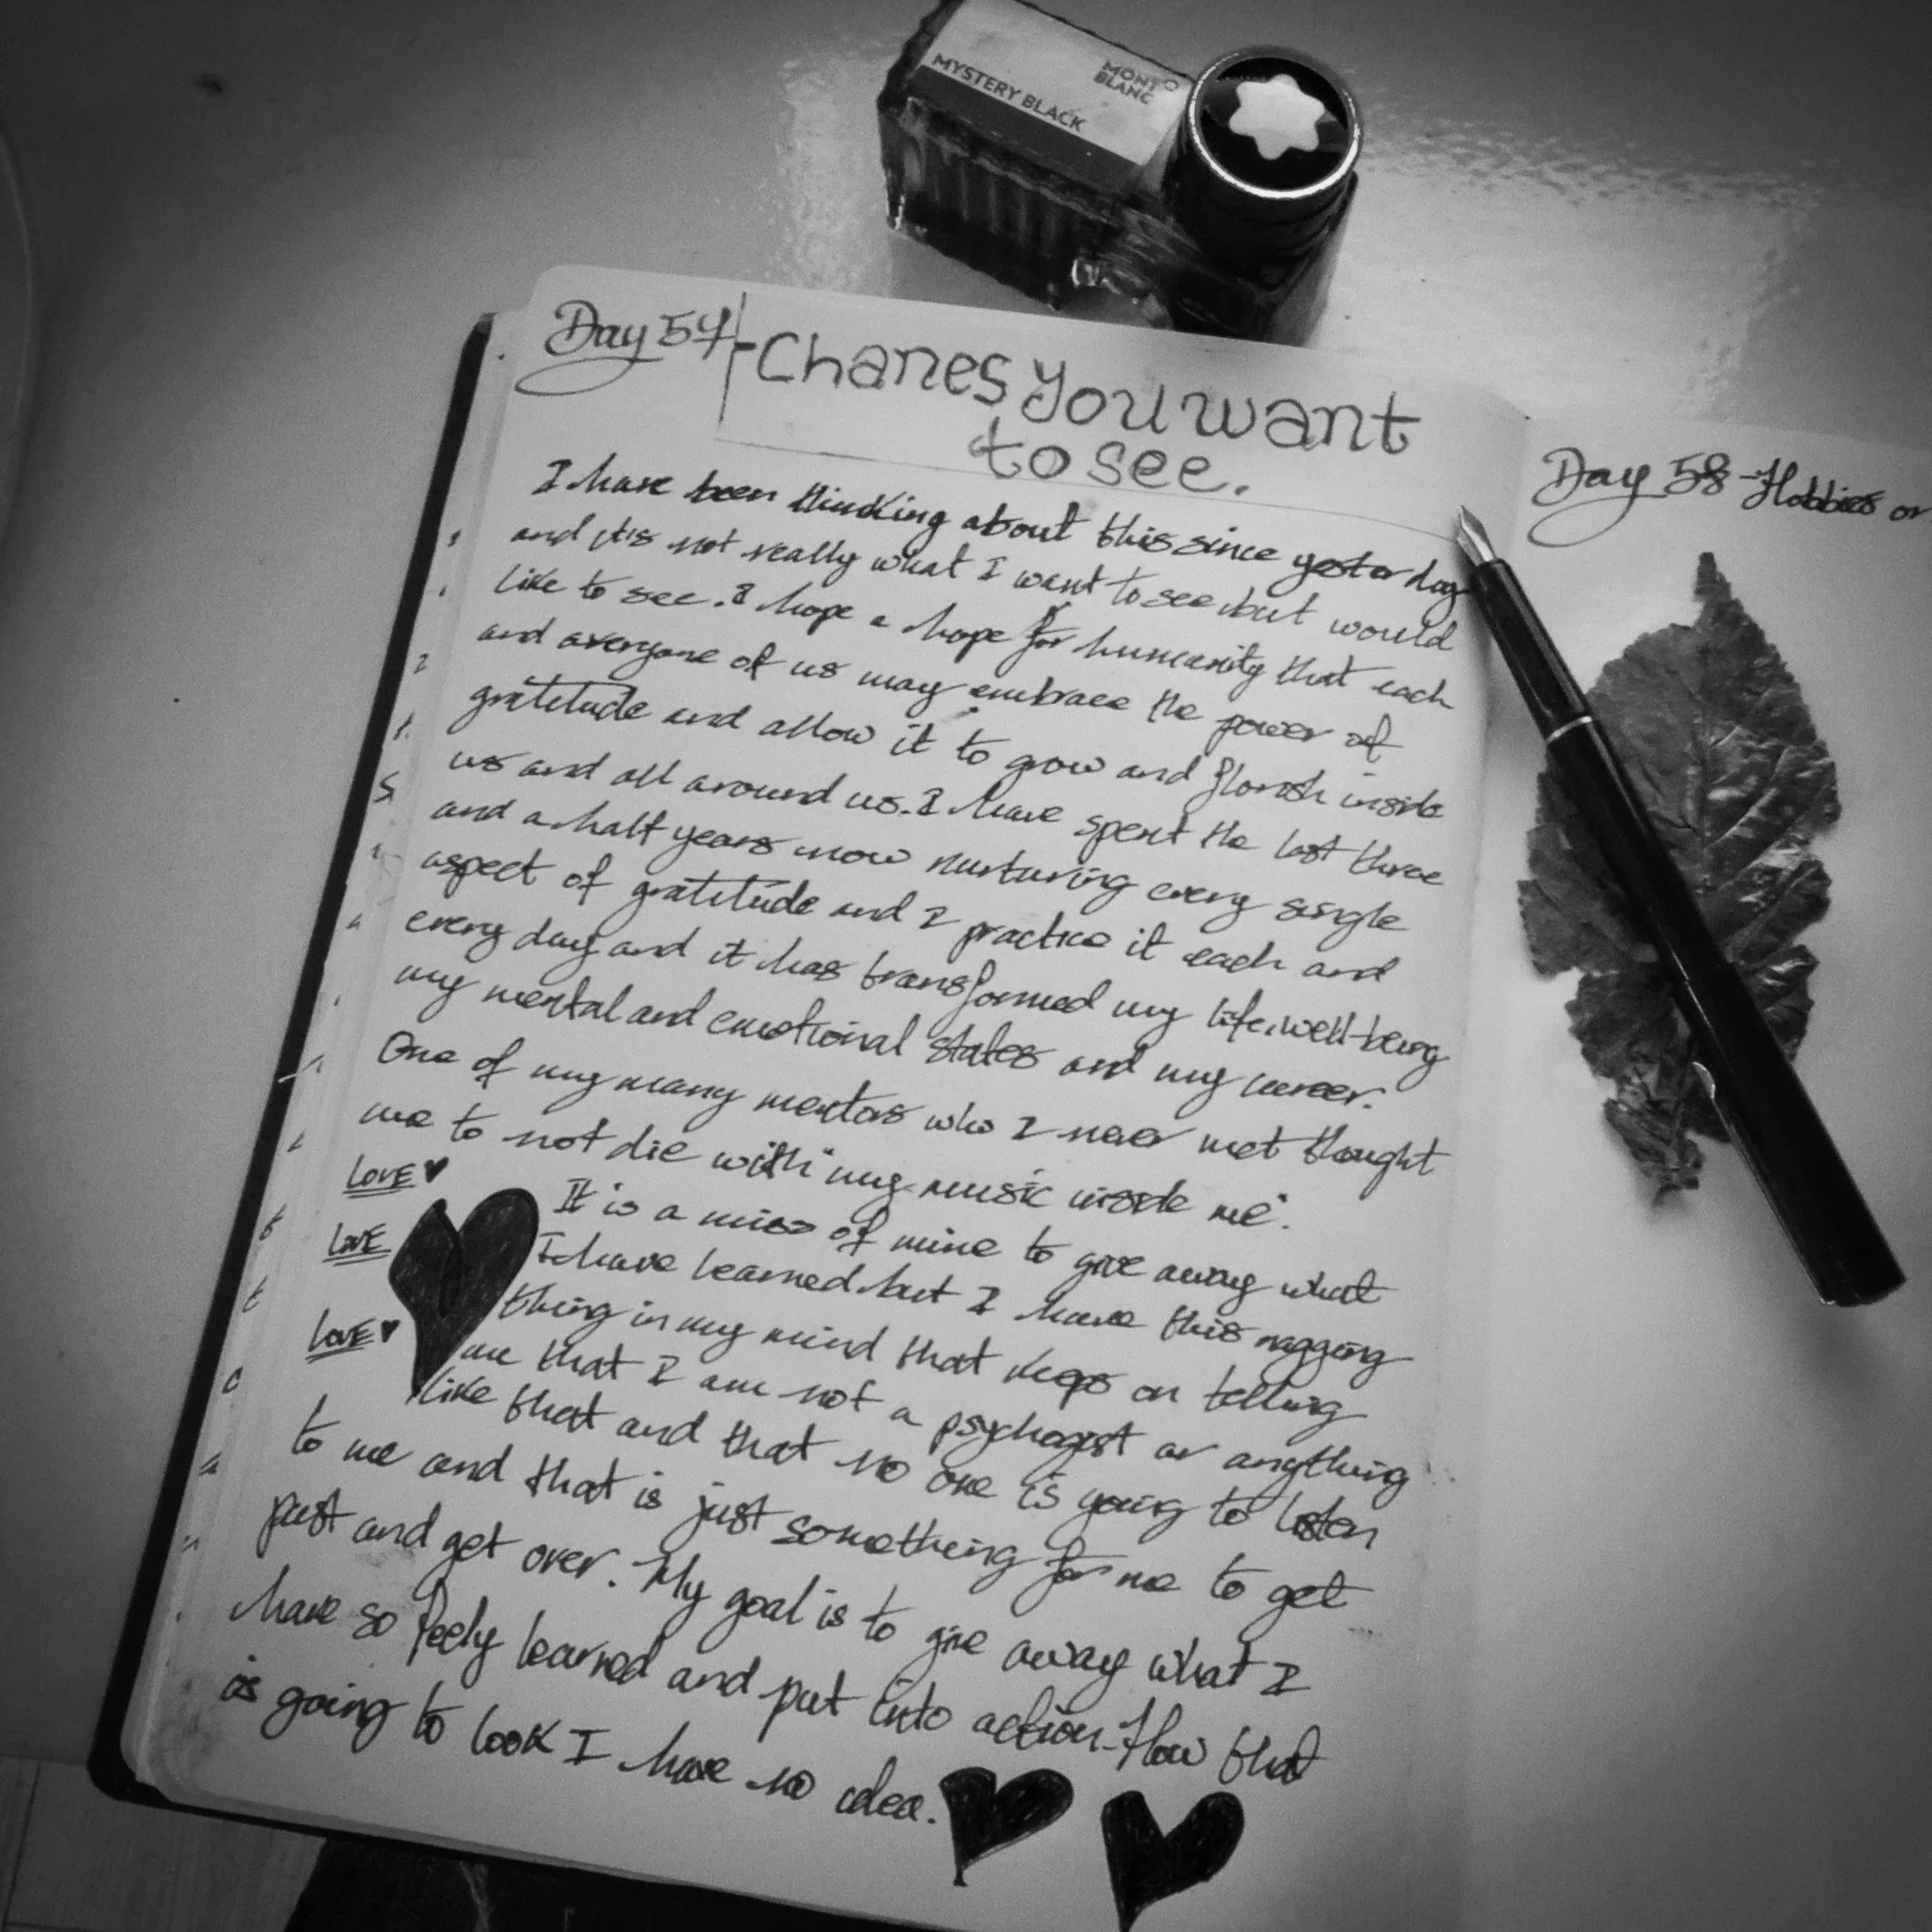 MONT
BLANC
MYSTERY BLACK
Day 57 - Chanes you want
to see.
I have been thinking about this since yesterday
and it's not really what I want to see but would
like to see. I hope a hope for humanity that each
and averyone of us may embrace the power of
gratitude and allow it to grow and florish inside
us and all around us. I have spent the last three
and a half years now nurturing every single
aspect of gratitude and I practice it each and
every day and it has transformed my life, well-being
my mental and emotional states and my career.
One of my many mentors who I never met thought
me to not die with "my music inside me".
LOVE ♥
LOVE
LOVE ♥
It is a of mine to give away what
I have learned but I have this nagging
thing in my mind that keeps on telling
me that I am not a psychogist or anything
like that and that no one is going to listen
to me and that is just something for me to get
past and get over. My goal is to give away what I
have so learned and put into action. How that
is going to look I have no idea.
Day 58 - Hobbies or